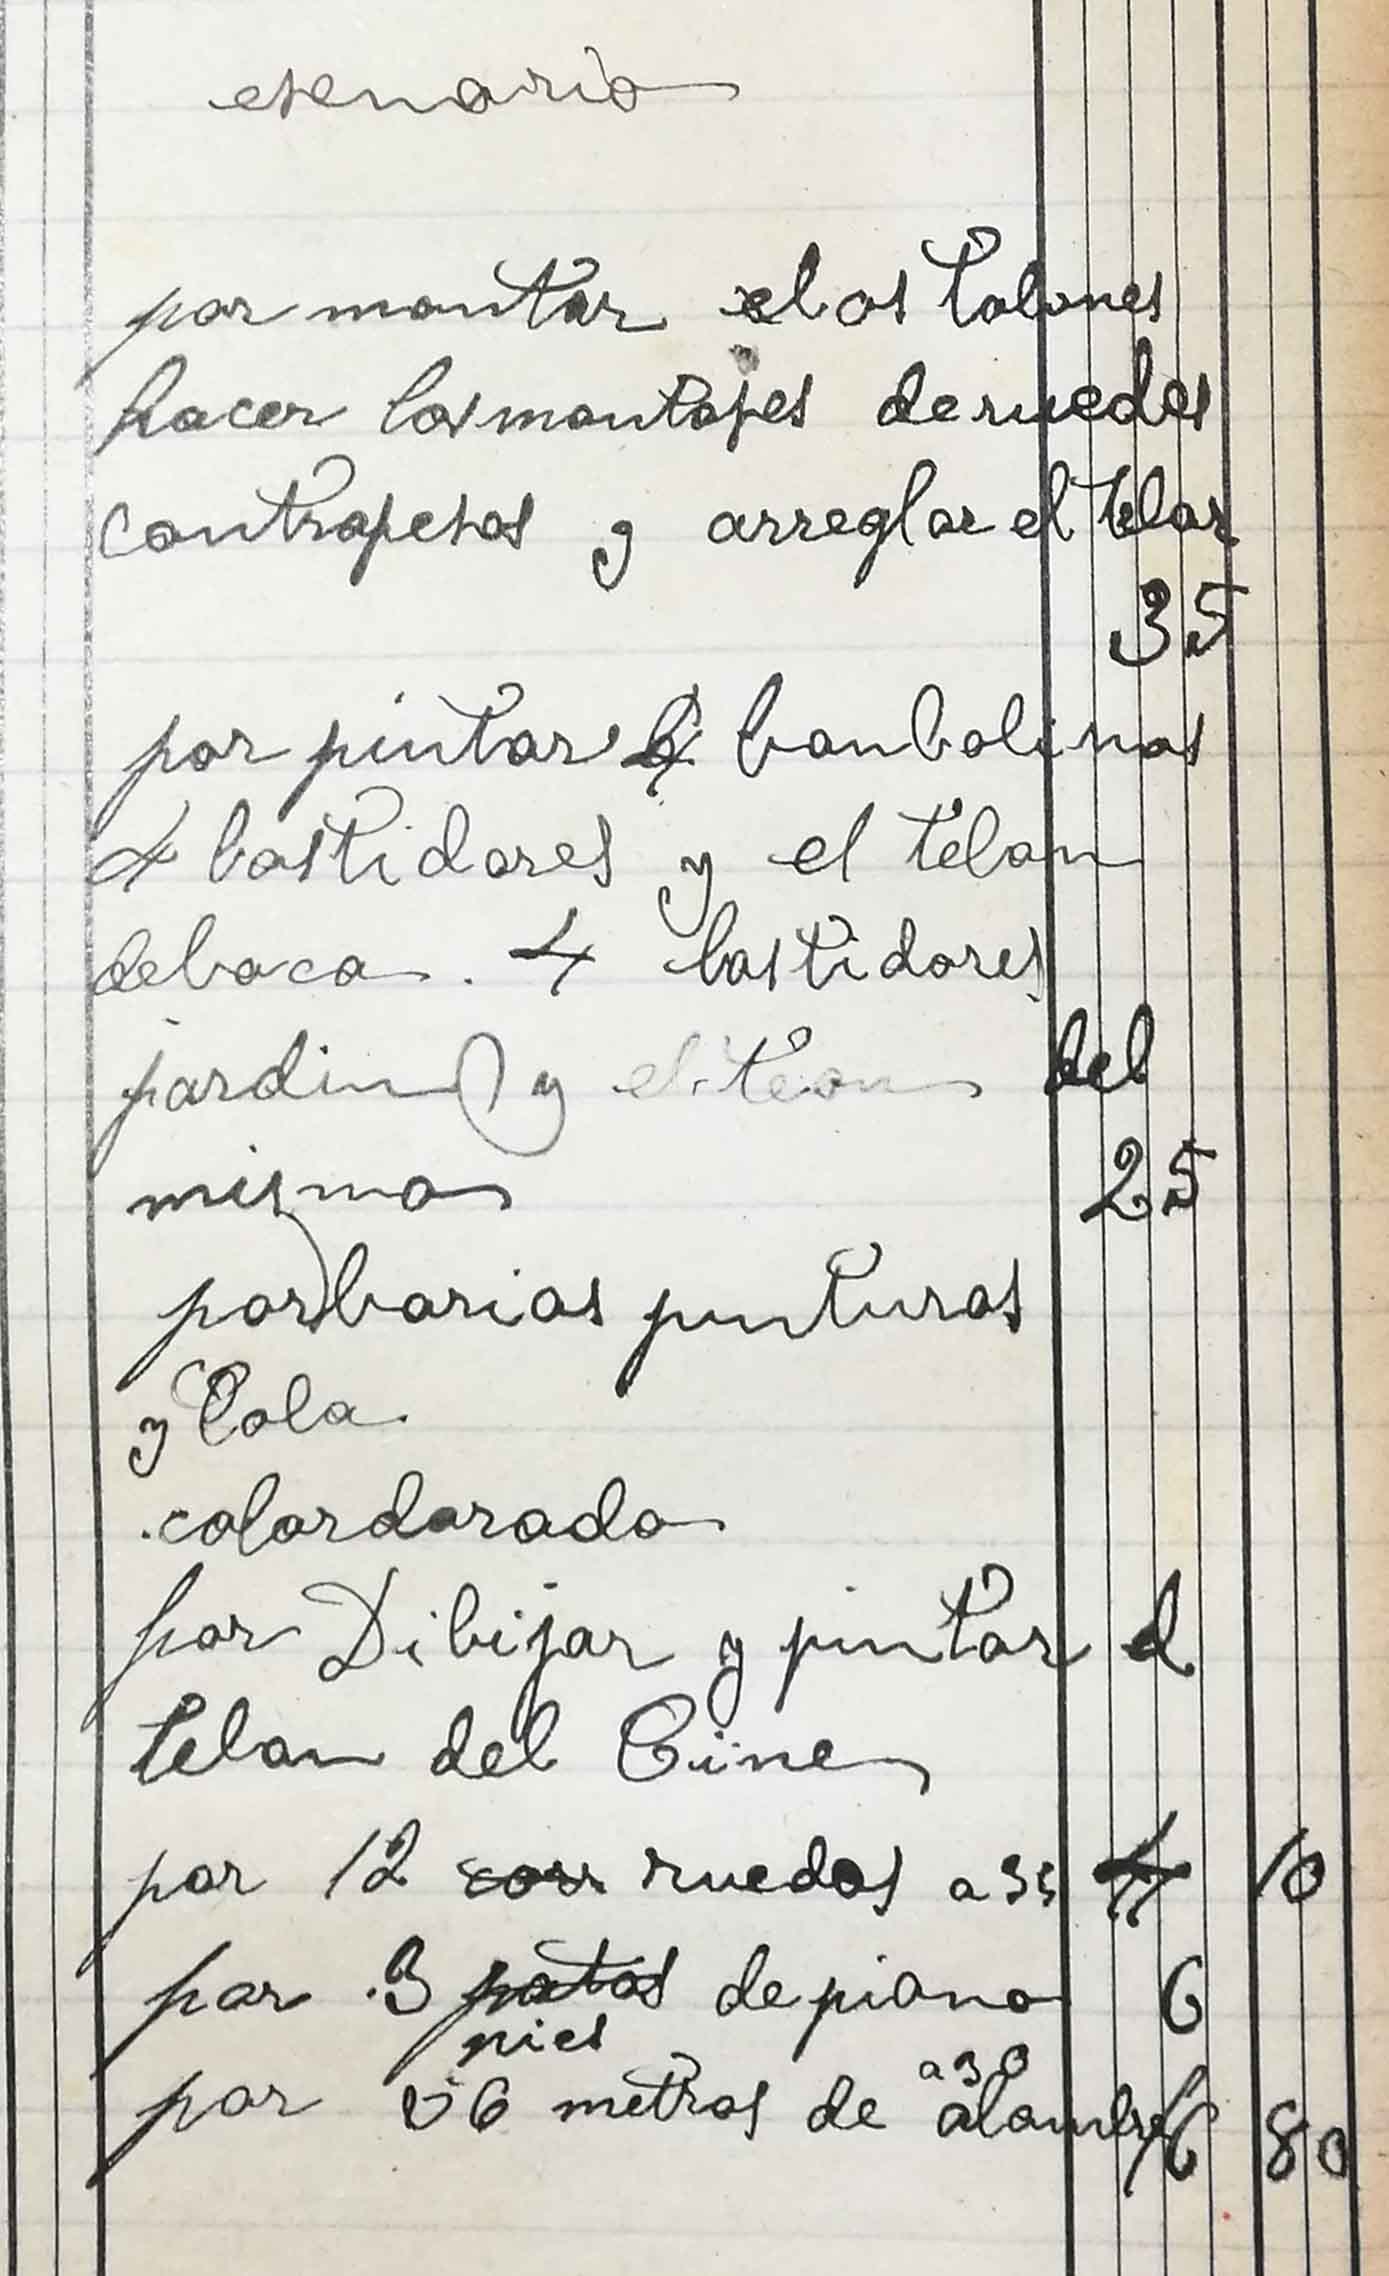 esenario
por montar elos talones
hacer los montajes de ruedas
contrapesos y arreglar el telar
35
por pintar 6 banbalinas
4 bastidores y el telon
de baca. 4 bastidores
jardin y el teon del
mismo 25
por barias pinturas
y Cola.
color dorado
por Dibijar y pintar el
telon del Cine
por 12 ruedas a 35 4 10
por 3 patas de piano 6
pies
a 30
por 56 metros de alambre 16 80